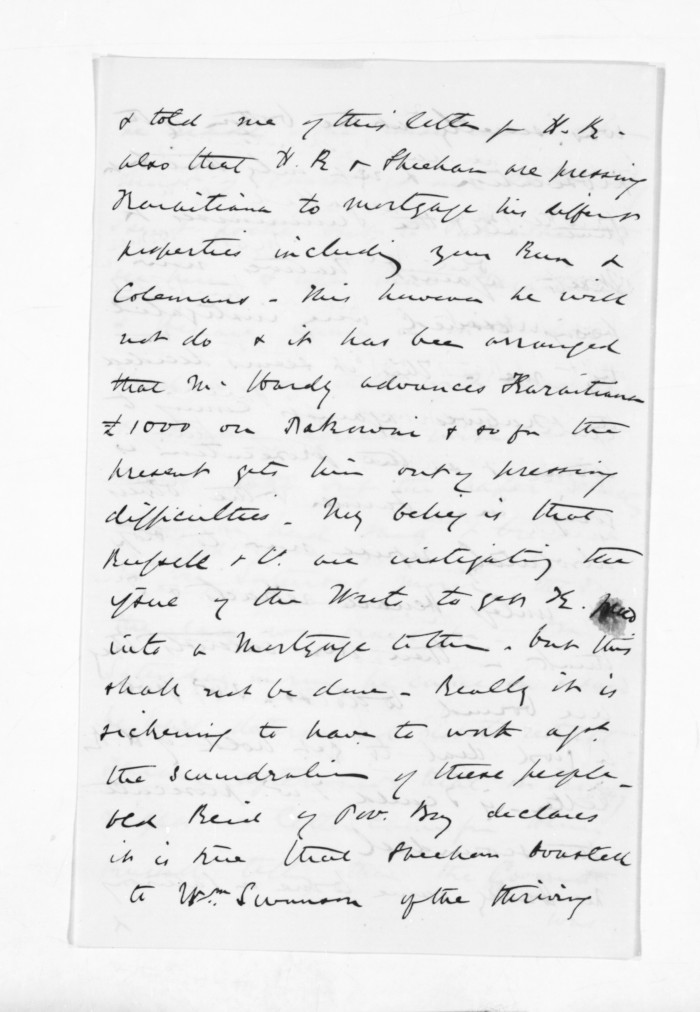 & told me of this letter fr H. R. -
also that H. R. & Sheehan are pressing
Karaitiana to mortgage his differt
properties including your Run &
Colemans - This however he will
not do & it has been arranged
that Mr Hardy advances Karaitiana
£1000 on & so for the
present gets him out of pressing
difficulties - My belief is that
Russell & Co. are instigating the
issue of the Writs to get K.
into a Mortgage to them - but this
shall not be done - Really it is
sickening to have to work agst
the scoundralism of these people -
old Reid of Pov. Bay declares
it is true that Sheehan boasted
to Wm Swanson of the thriving